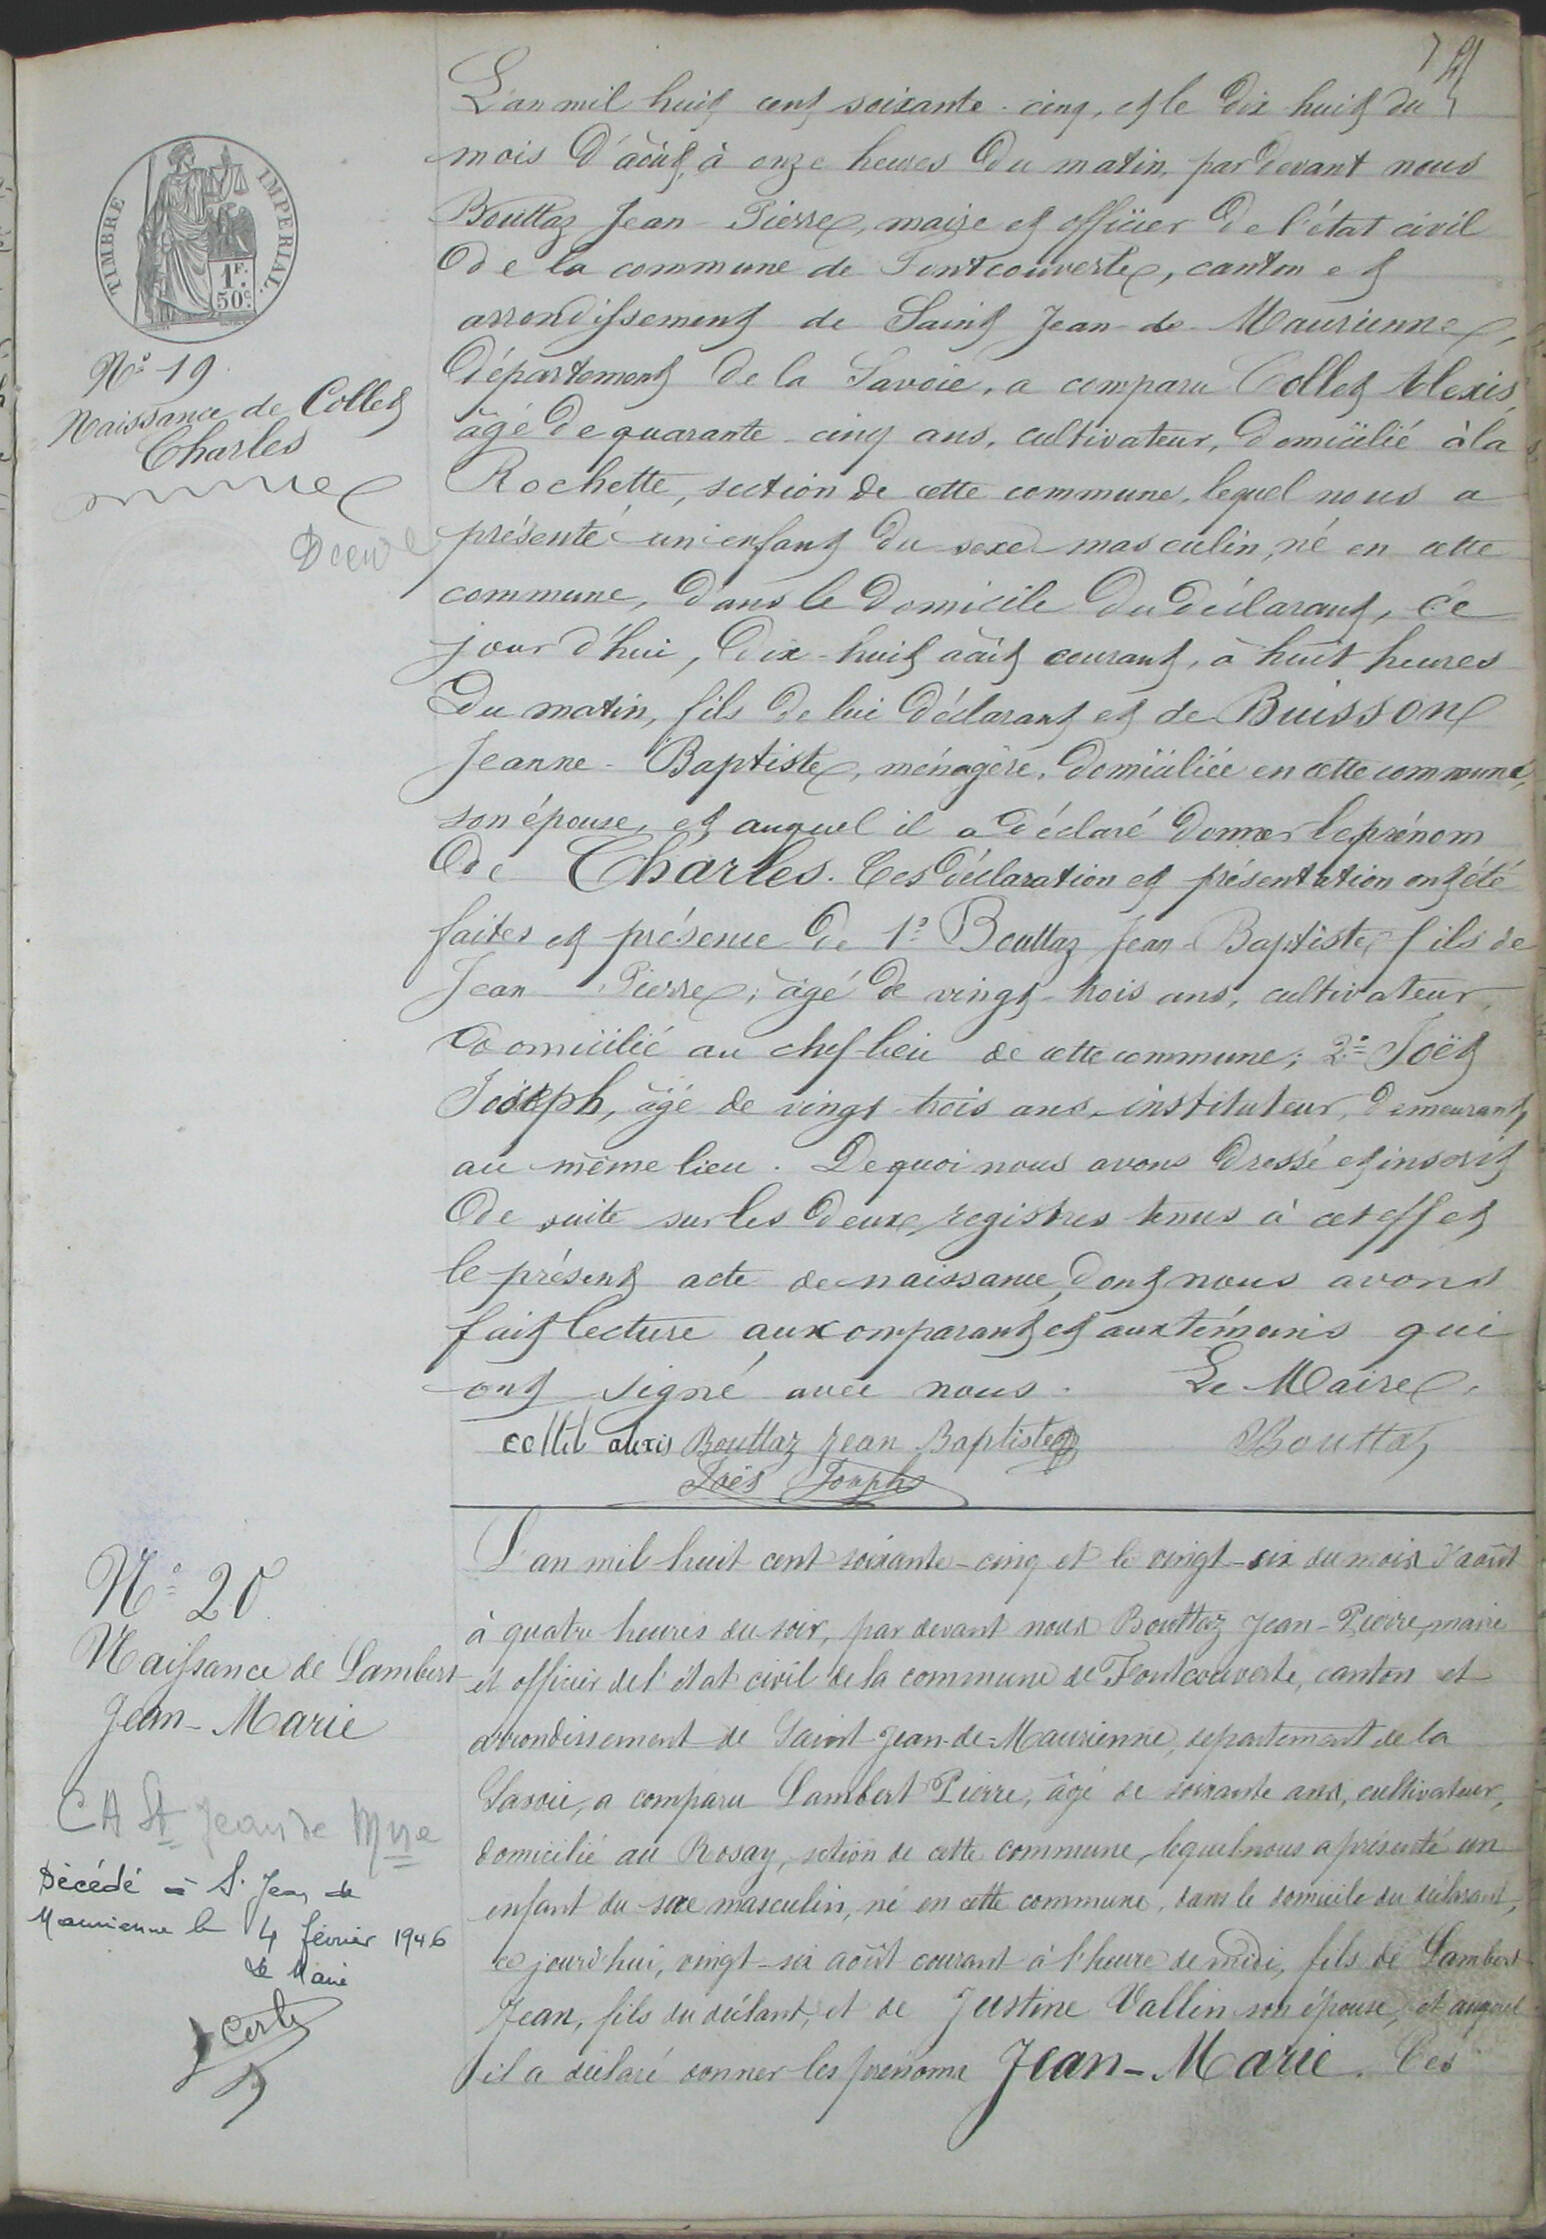 L'an mil huit cent soixante-cinq, et le dix huit du
mois d'août, à onze heures du matin, par devant nous
Bouttaz Jean-Pierre, maire et officier de l'état civil
de la commune de Fontcouverte, canton et
arrondissement de Saint Jean-de-Maurienne,
département de la Savoie, a comparu Collet Alexis,
âgé de quarante-cinq ans, cultivateur, domicilié à la
Rochette, section de cette commune, lequel nous a
présenté un enfant du sexe masculin, né en cette
commune, dans le domicile du déclarant, ce
jourd'hui, dix-huit août courant, à huit heures
du matin, fils de lui déclarant et de Buisson
Jeanne-Baptiste, ménagère, domiciliée en cette commune,
son épouse, et auquel il a déclaré donner le prénom
de Charles. Ces déclaration et présentation ont été
faites et présence de 1º Bouttaz Jean-Baptiste fils de
Jean Pierre, âgé de vingt-trois ans, cultivateur,
domicilié au chef-lieu de cette commune; 2º Joët
Joseph, âgé de vingt trois ans, instituteur, demeurant
au même lieu. De quoi nous avons dressé et inscrit
de suite sur les deux registres tenus à cet effet
le présent acte de naissance, dont nous avons
fait lecture aux comparant et aux témoins qui
ont signé avec nous. Le Maire,
collet alexis Bouttaz Jean Baptiste Bouttaz
Joseph
TIMBRE IMPERIAL
1F.
50c.
Nº 19
Naissance de Collet
Charles
L'an mil huit cent soixante-cinq et le vingt-six du mois d'août
à quatre heures du soir, par devant nous Bouttaz Jean-Pierre, maire
et officier de l'état civil de la commune de Fontcouverte, canton et
arrondissement de Saint-Jean-de-Maurienne, département de la
Savoie, a comparu Lambert Pierre, âgé de soixante ans, cultivateur,
domicilié au Rosay, section de cette commune, lequel nous a présenté un
enfant du sexe masculin, né en cette commune, dans le domicile du déclarant,
ce jourd'hui, vingt-six août courant à l'heure de midi, fils de Lambert
Jean, fils du déclant, et de Justine Vallin son épouse, et auquel
il a déclaré donner les prénoms Jean-Marie. Ces
Nº 20
Naissance de Lambert
Jean-Marie
CA St Jean de Mnne
Décédé à St Jean de
Maurienne le 4 février 1946
Le Maire